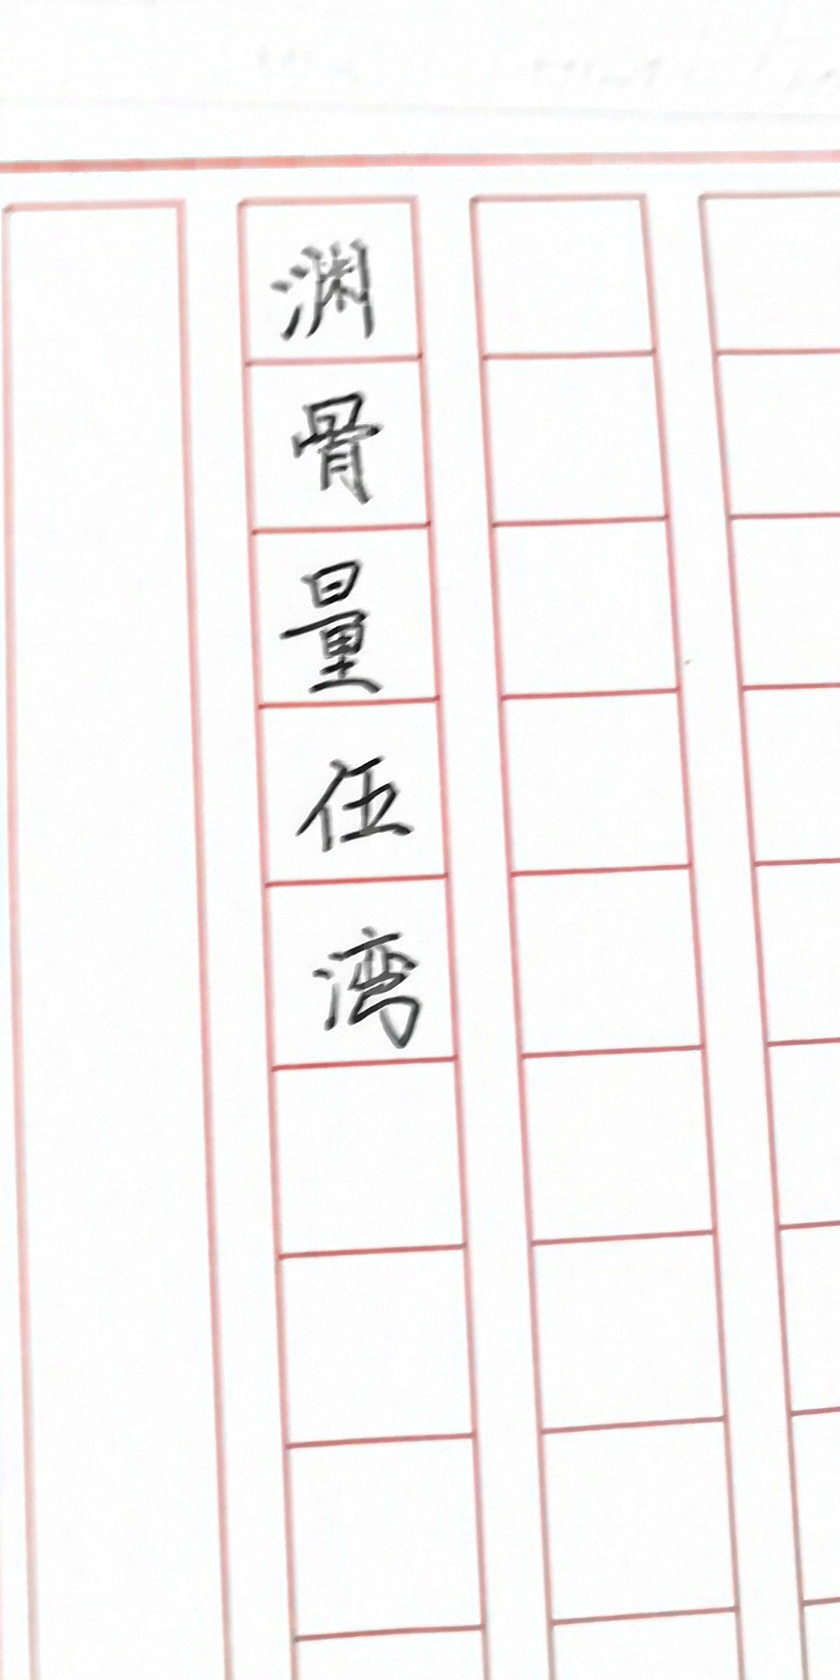 渊骨量伍湾